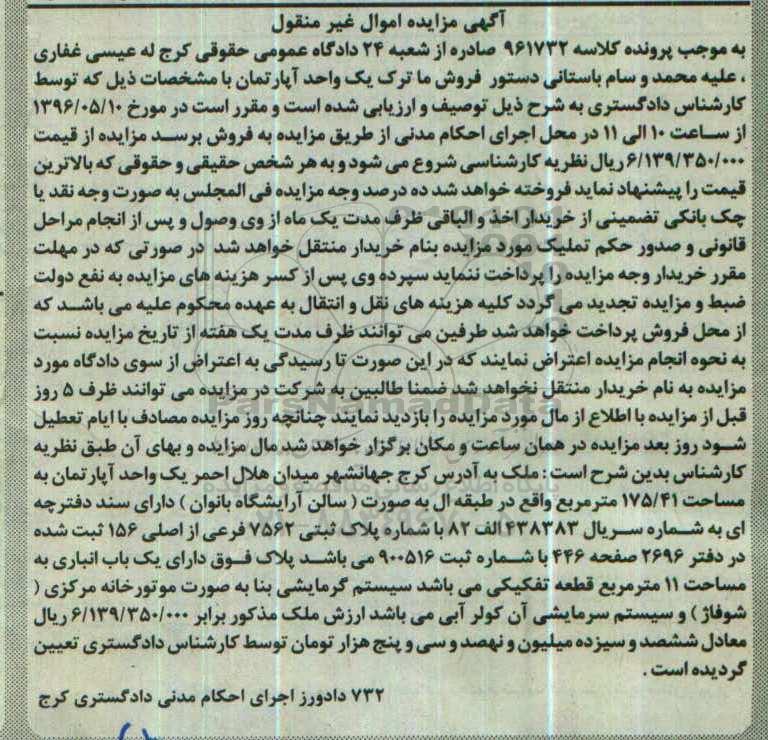 آگهی مزایده اموال غیر منقول
به موجب پرونده کلاسه ۹۶۱۷۳۲ صادره از شعبه ۲۴ دادگاه عمومی حقوقی کرج له عیسی غفاری
، علیه محمد و سام باستانی دستور فروش ما ترک یک واحد آپارتمان با مشخصات ذیل که توسط
کارشناس دادگستری به شرح ذیل توصیف و ارزیابی شده است و مقرر است در مورخ ۱۳۹۶/۰۵/۱۰
از ساعت ۱۰ الی ۱۱ در محل اجرای احکام مدنی از طریق مزایده به فروش برسد مزایده از قیمت
۶/۱۳۹/۳۵۰/۰۰۰ ریال نظریه کارشناسی شروع می شود و به هر شخص حقیقی و حقوقی که بالاترین
قیمت را پیشنهاد نماید فروخته خواهد شد ده درصد وجه مزایده فی المجلس به صورت وجه نقد یا
چک بانکی تضمینی از خریدار اخذ و الباقی ظرف مدت یک ماه از وی وصول و پس از انجام مراحل
قانونی و صدور حکم تملیک مورد مزایده بنام خریدار منتقل خواهد شد در صورتی که در مهلت
مقرر خریدار وجه مزایده را پرداخت ننماید سپرده وی پس از کسر هزینه های مزایده به نفع دولت
ضبط و مزایده تجدید می گردد کلیه هزینه های نقل و انتقال به عهده محکوم علیه می باشد که
از محل فروش پرداخت خواهد شد طرفین می توانند ظرف مدت یک هفته از تاریخ مزایده نسبت
به نحوه انجام مزایده اعتراض نمایند که در این صورت تا رسیدگی به اعتراض از سوی دادگاه مورد
مزایده به نام خریدار منتقل نخواهد شد ضمنا طالبین به شرکت در مزایده می توانند ظرف ۵ روز
قبل از مزایده با اطلاع از مال مورد مزایده را بازدید نمایند چنانچه روز مزایده مصادف با ایام تعطیل
شود روز بعد مزایده در همان ساعت و مکان برگزار خواهد شد مال مزایده و بهای آن طبق نظریه
کارشناس بدین شرح است : ملک به آدرس کرج جهانشهر میدان هلال احمر یک واحد آپارتمان به
مساحت ۱۷۵/۴۱ مترمربع واقع در طبقه ال به صورت ( سالن آرایشگاه بانوان ) دارای سند دفترچه
ای به شماره سریال ۴۳۸۳۸۳ الف ۸۲ با شماره پلاک ثبتی ۷۵۶۲ فرعی از اصلی ۱۵۶ ثبت شده
در دفتر ۲۶۹۶ صفحه ۴۴۶ با شماره ثبت ۹۰۰۵۱۶ می باشد پلاک فوق دارای یک باب انباری به
مساحت ۱۱ مترمربع قطعه تفکیکی می باشد سیستم گرمایشی بنا به صورت موتورخانه مرکزی (
شوفاژ ) و سیستم سرمایشی آن کولر آبی می باشد ارزش ملک مذکور برابر ۶/۱۳۹/۳۵۰/۰۰۰ ریال
معادل ششصد و سیزده میلیون و نهصد و سی و پنج هزار تومان توسط کارشناس دادگستری تعیین
گردیده است .
۷۳۲ دادورز اجرای احکام مدنی دادگستری کرج